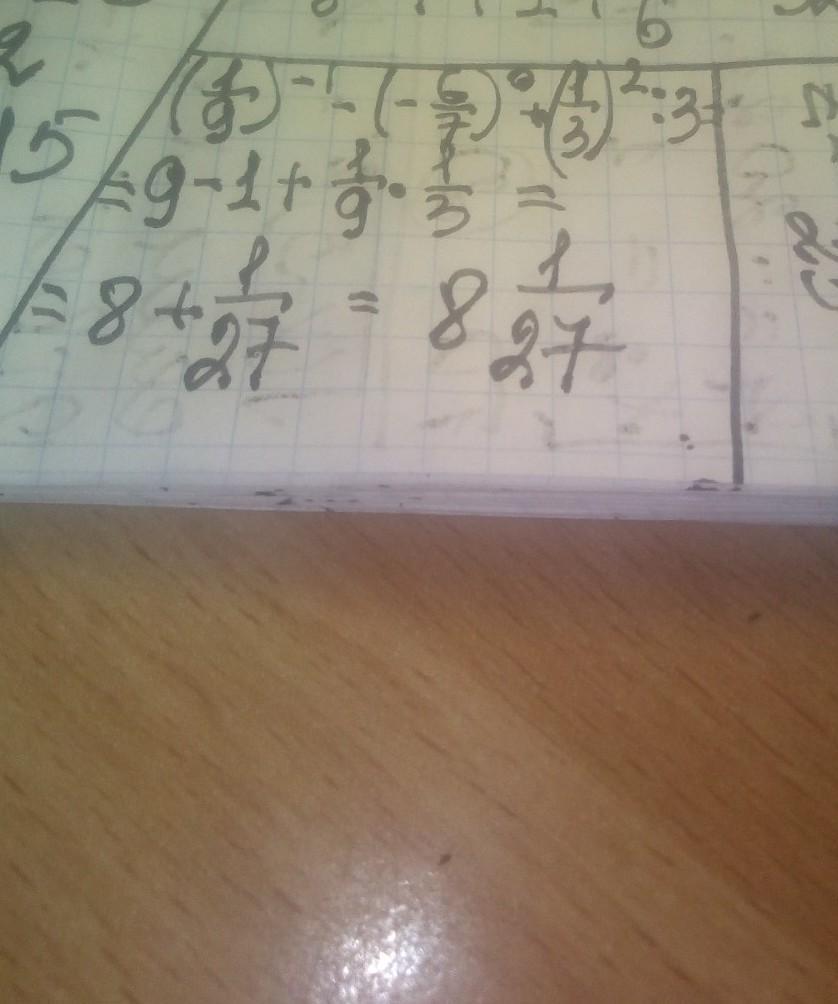 6
2
15
(1/9)^-1 - (-6/7)^0 + (1/3)^2 : 3 =
= 9 - 1 + 1/9 · 1/3 =
= 8 + 1/27 = 8 1/27